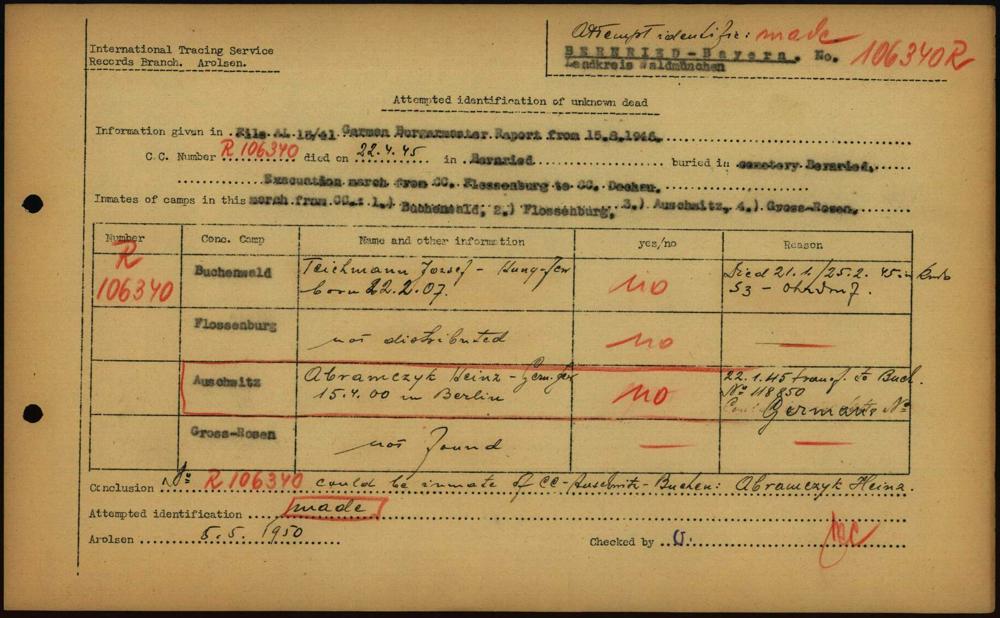 Attempt identific: made
International Tracing Service
BERNRIED-Bayern. No. 106340R
Records Branch. Arolsen.
Landkreis Waldmünchen
Attempted identification of unknown dead
Information given in File AL 13/41 German Burgermester Raport from 15.8.1946.
C.C. Number R 106340 died on 22.4.45 in Bernried buried in cemetery Bernried,
Evacuation march from CC. Flossenburg to CC. Dachau.
Inmates of camps in this march from CC.: 1.) Buchenwald, 2.) Flossenburg, 3.) Auschwitz, 4.) Gross-Rosen.
Number Conc. Camp Name and other information yes/no Reason
R 106340 Buchenwald Teichmann Jozsef - Hung-Jew born 22.2.07. no Died 21.1/25.2. 45 in
S3 - Ohrdruf.
Flossenburg not distributed no —
Auschwitz Abramczyk Heinz - Germ-Jew 15.4.00 in Berlin no 22.1.45 transf. to Buch.
No 118850
Germans No
Gross-Rosen not found — —
Conclusion No R 106340 could be inmate of CC-Auschwitz-Buchen: Abramczyk Heinz.
Attempted identification made
Arolsen 5.5. 1950 Checked by